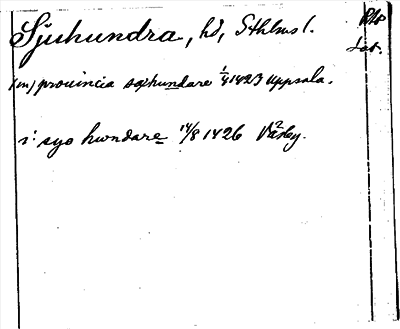 Sjuhundra, hd, Sthlms l.
(in) provincia siohundare 1/9 1423 Uppsala.
i syo hwndare 14/8 1426 Väsby.